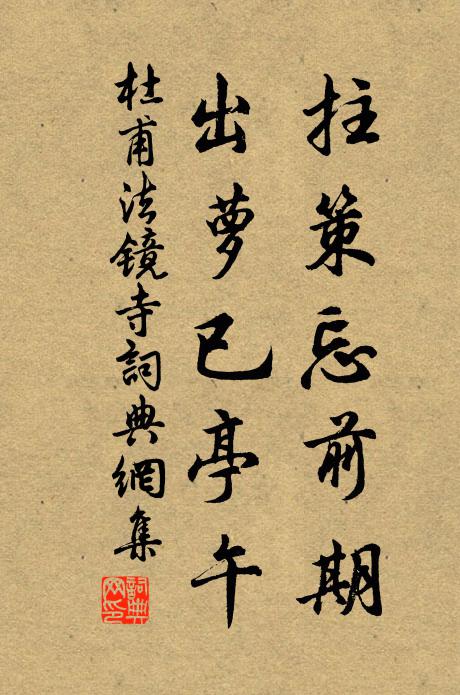 拄策忘前期
出萝已亭午
杜甫法镜寺詞典網集
詞典网印